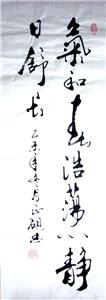 氣和春浩蕩心靜
日舒長
乙未年冬月